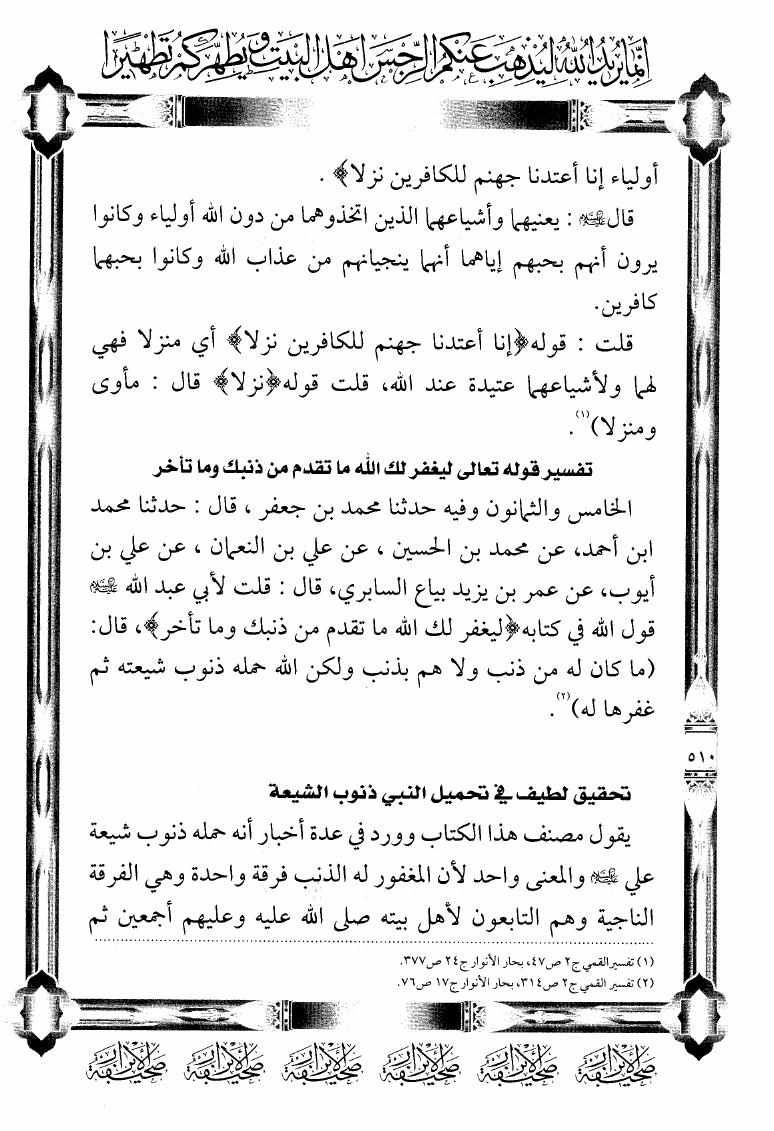 إنما يريد الله ليذهب عنكم الرجس أهل البيت ويطهركم تطهيرا
أولياء إنا أعتدنا جهنم للكافرين نزلا﴾ .
قال : يعنيهما وأشياعهما الذين اتخذوهما من دون الله أولياء وكانوا
يرون أنهم بحبهم إياهما أنهما ينجيانهم من عذاب الله وكانوا بحبهما
كافرين.
قلت : قوله﴿إنا أعتدنا جهنم للكافرين نزلا﴾ أي منزلا فهي
لهما ولأشياعهما عتيدة عند الله، قلت قوله﴿نزلا﴾ قال : مأوى
ومنزلا)(١).
تفسير قوله تعالى ليغفر لك الله ما تقدم من ذنبك وما تأخر
الخامس والثمانون وفيه حدثنا محمد بن جعفر ، قال : حدثنا محمد
ابن أحمد، عن محمد بن الحسين ، عن علي بن النعمان ، عن علي بن
أيوب، عن عمر بن يزيد بياع السابري، قال : قلت لأبي عبد الله
قول الله في كتابه﴿ليغفر لك الله ما تقدم من ذنبك وما تأخر﴾، قال:
(ما كان له من ذنب ولا هم بذنب ولكن الله حمله ذنوب شيعته ثم
غفرها له)(٢).
٥١٠
تحقيق لطيف في تحميل النبي ذنوب الشيعة
يقول مصنف هذا الكتاب وورد في عدة أخبار أنه حمله ذنوب شيعة
علي والمعنى واحد لأن المغفور له الذنب فرقة واحدة وهي الفرقة
الناجية وهم التابعون لأهل بيته صلى الله عليه وعليهم أجمعين ثم
(١) تفسير القمي ج٢ ص٤٧، بحار الأنوار ج٢٤ ص٣٧٧.
(٢) تفسير القمي ج٢ ص٣١٤، بحار الأنوار ج١٧ ص٧٦.